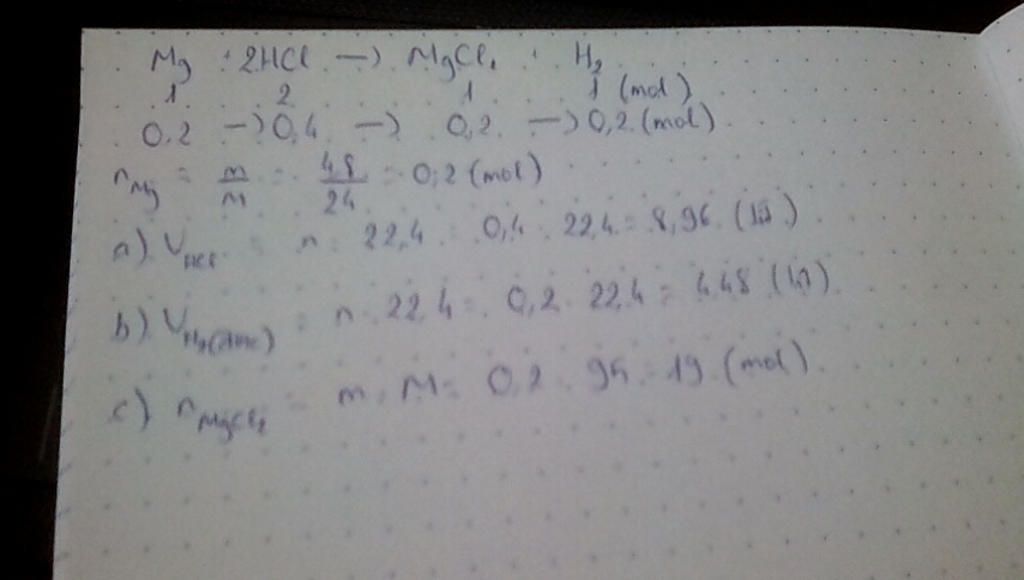 Mg + 2HCl → MgCl₂ + H₂
1 2 1 1 (mol)
0,2 → 0,4 → 0,2 → 0,2 (mol)
nMg = m/M = 4,8/24 = 0,2 (mol)
a) VHCl = n . 22,4 = 0,4 . 22,4 = 8,96 (lít)
b) VH₂(đktc) = n . 22,4 = 0,2 . 22,4 = 4,48 (lít)
c) nMgCl₂ = m . M = 0,2 . 95 = 19 (mol)